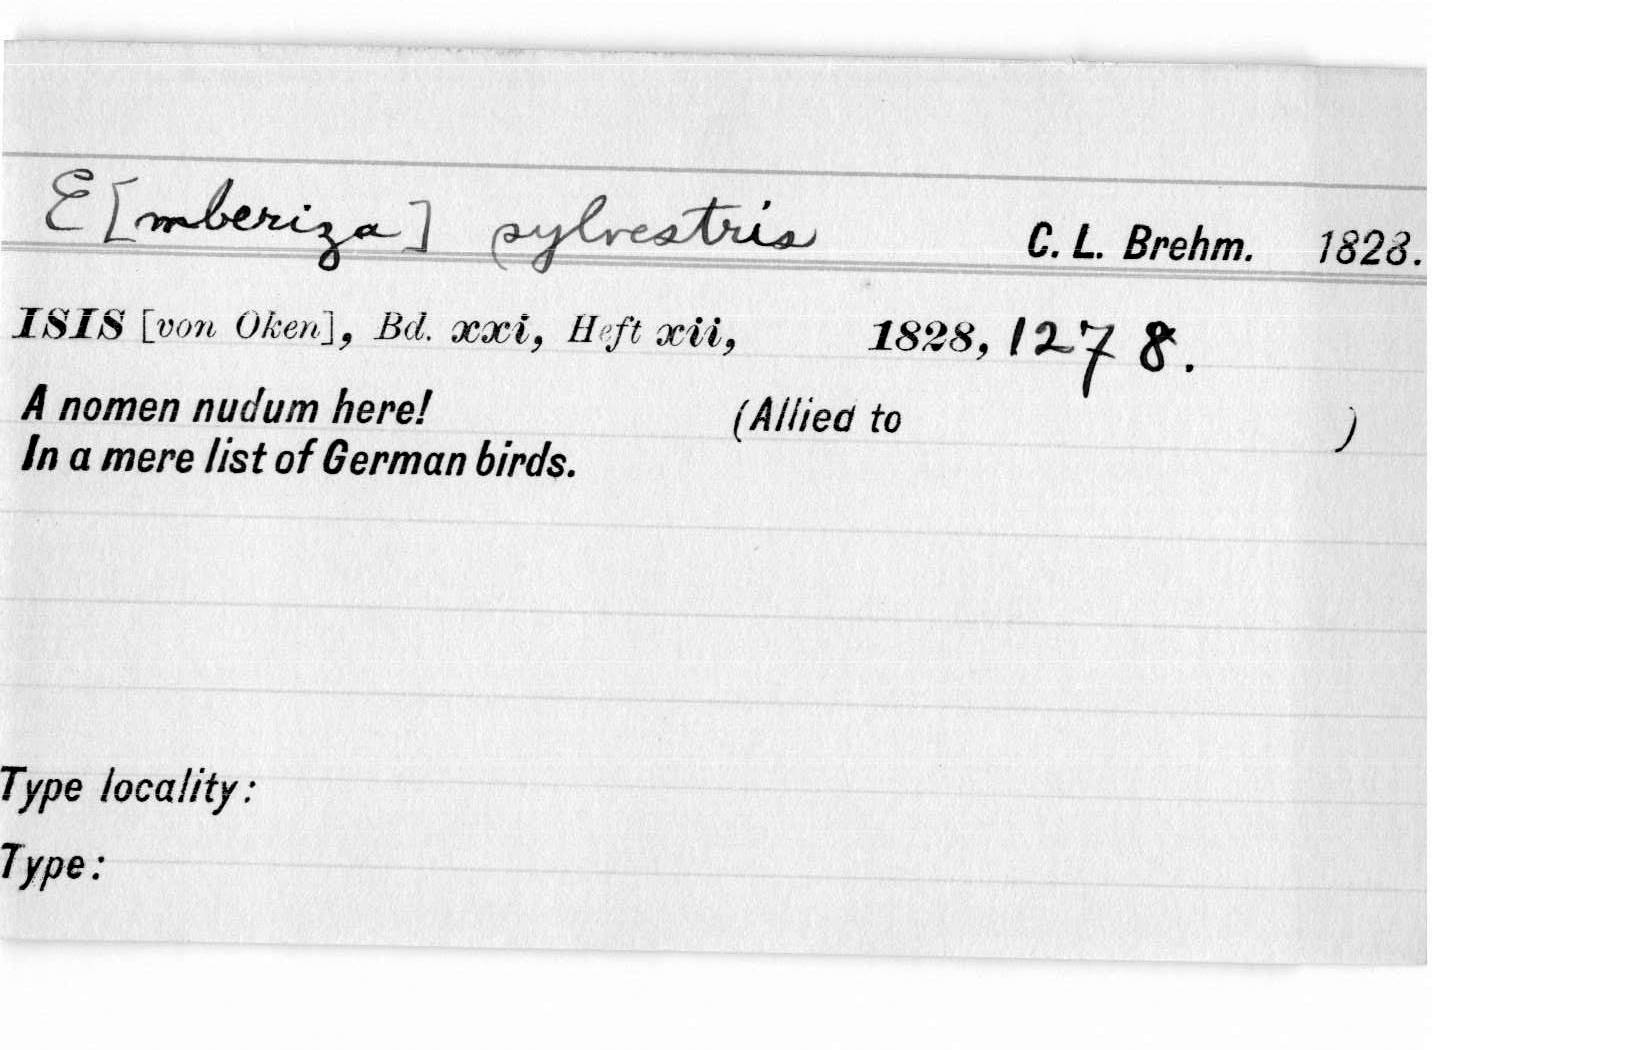 E[mberiza] sylvestris C. L. Brehm. 1828.
ISIS [von Oken], Bd. xxi, Heft xii, 1828, 1278.
A nomen nudum here! (Allied to )
In a mere list of German birds.
Type locality:
Type: